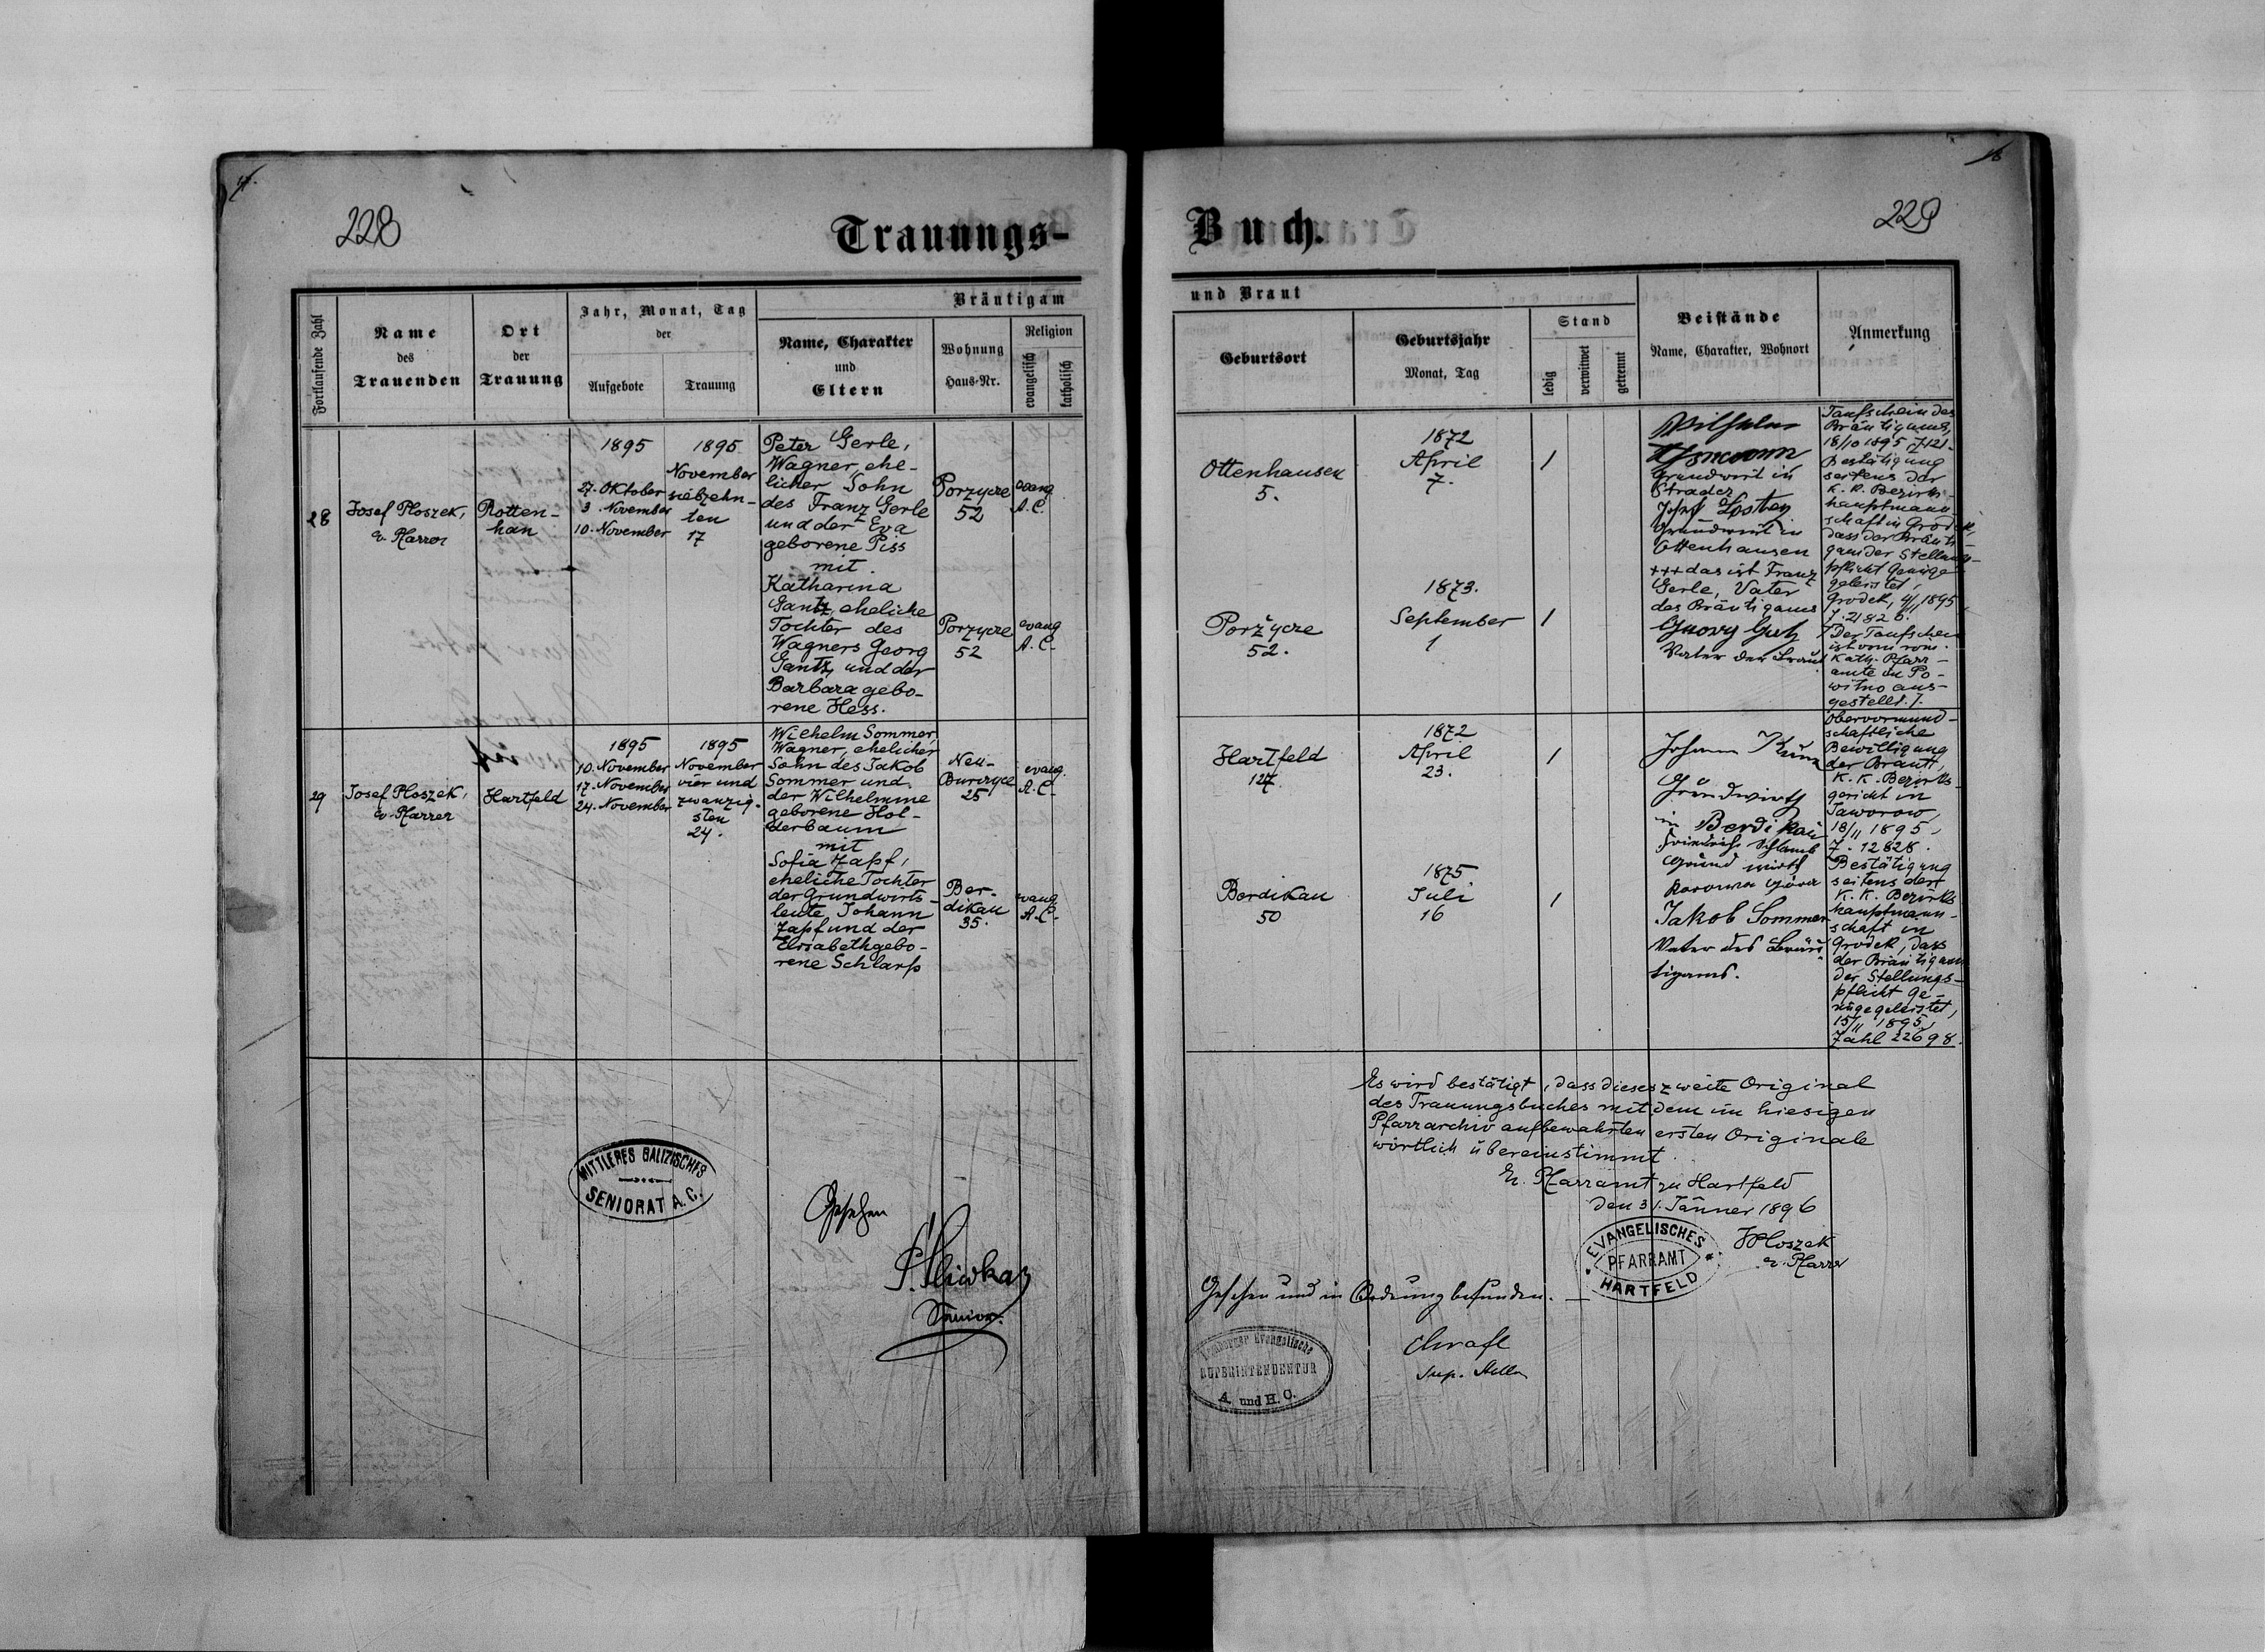 228
Trauungs-
Fortlaufende Zahl
Name
des
Trauenden
Ort
der
Trauung
Jahr, Monat, Tag
der
Aufgebote
Trauung
Bräutigam
Name, Charakter
und
Eltern
Wohnung
Haus-Nr.
Religion
evangelisch
katholisch
28
Josef Ploszek,
ev. Pfarrer
Rotten-
han
1895
27. Oktober
3. November
10. November
1895
November
siebzehn-
ten
17
Peter Gerle,
Wagner, ehe-
licher Sohn
des Franz Gerle
und der Eva
geborene Piss
mit
Katharina
Gantz, eheliche
Tochter des
Wagners Georg
Gantz, und der
Barbara gebo-
rene Hess.
Porzycze
52
evang
A. C.
Porzycze
52
evang
A. C.
29
Josef Ploszek,
ev. Pfarrer
Hartfeld
1895
10. November
17. November
24. November
1895
November
vier und
zwanzig-
sten
24.
Wilhelm Sommer,
Wagner, ehelicher
Sohn des Jakob
Sommer und
der Wilhelmine
geborene Hol-
derbaum
mit
Sofia Zapf,
eheliche Tochter
der Grundwirts-
leute Johann
Zapf und der
Elisabeth gebo-
rene Schlarp
Neu-
Burczyce
25
evang.
A. C.
Ber-
dikau
35.
evang
A. C.
MITTLERES GALIZISCHES
SENIORAT A. C.
Gesehen
Senior.
229
Buch.
und Braut
Geburtsort
Geburtsjahr
Monat, Tag
Stand
ledig
verwitwet
getrennt
Beistände
Name, Charakter, Wohnort
Anmerkung
Ottenhausen
5.
1872
April
7.
/
Porżycze
52.
1873.
September
1
/
Wilhelm
Grundwirt in
Grundwirt in
Ottenhausen
+++ das ist Franz
Gerle, Vater
des Bräutigams
Vater der Braut
Taufschein des
Bräutigams,
18/10 1895 Z 121.
Bestätigung
seitens der
k. k. Bezirks-
hauptmann-
schaft in Grodek,
dass der Bräuti-
gam der Stellungs-
pflicht Genüge
geleistet
Grodek, 4/11 1895
Z. 21826.
/ Der Taufschein
ist vom röm.
kath. Pfarr-
amte in Po-
witno aus-
gestellt. /.
Hartfeld
127.
1872
April
23.
/
Berdikau
50
1875
Juli
16
/
Johann
Grundwirth
in Berdikau
Friedrich Schlamb
Grundwirth
Jakob Sommer
Vater des Bräu-
tigams.
Obervormund-
schaftliche
Bewilligung
der Braut,
K. K. Bezirks-
gericht in
Jaworow,
18/11 1895,
Z. 12828.
Bestätigung
seitens der
K. K. Bezirks
hauptmann-
schaft in
Grodek, dass
der Bräutigam
der Stellungs-
pflicht Ge-
nüge geleistet,
15/11 1895,
Zahl 22698.
Es wird bestätigt, dass dieses zweite Original
des Trauungsbuches mit dem im hiesigen
Pfarrarchiv aufbewahrten ersten Originale
wörtlich übereinstimmt.
Ev. Pfarramt zu Hartfeld
den 31. Jänner 1896
EVANGELISCHES
PFARRAMT
HARTFELD
JPloszek
ev. Pfarrer
Gesehen und in Ordnung befunden.
Lemberger Evangelische
SUPERINTENDENTUR
A. und H. C.